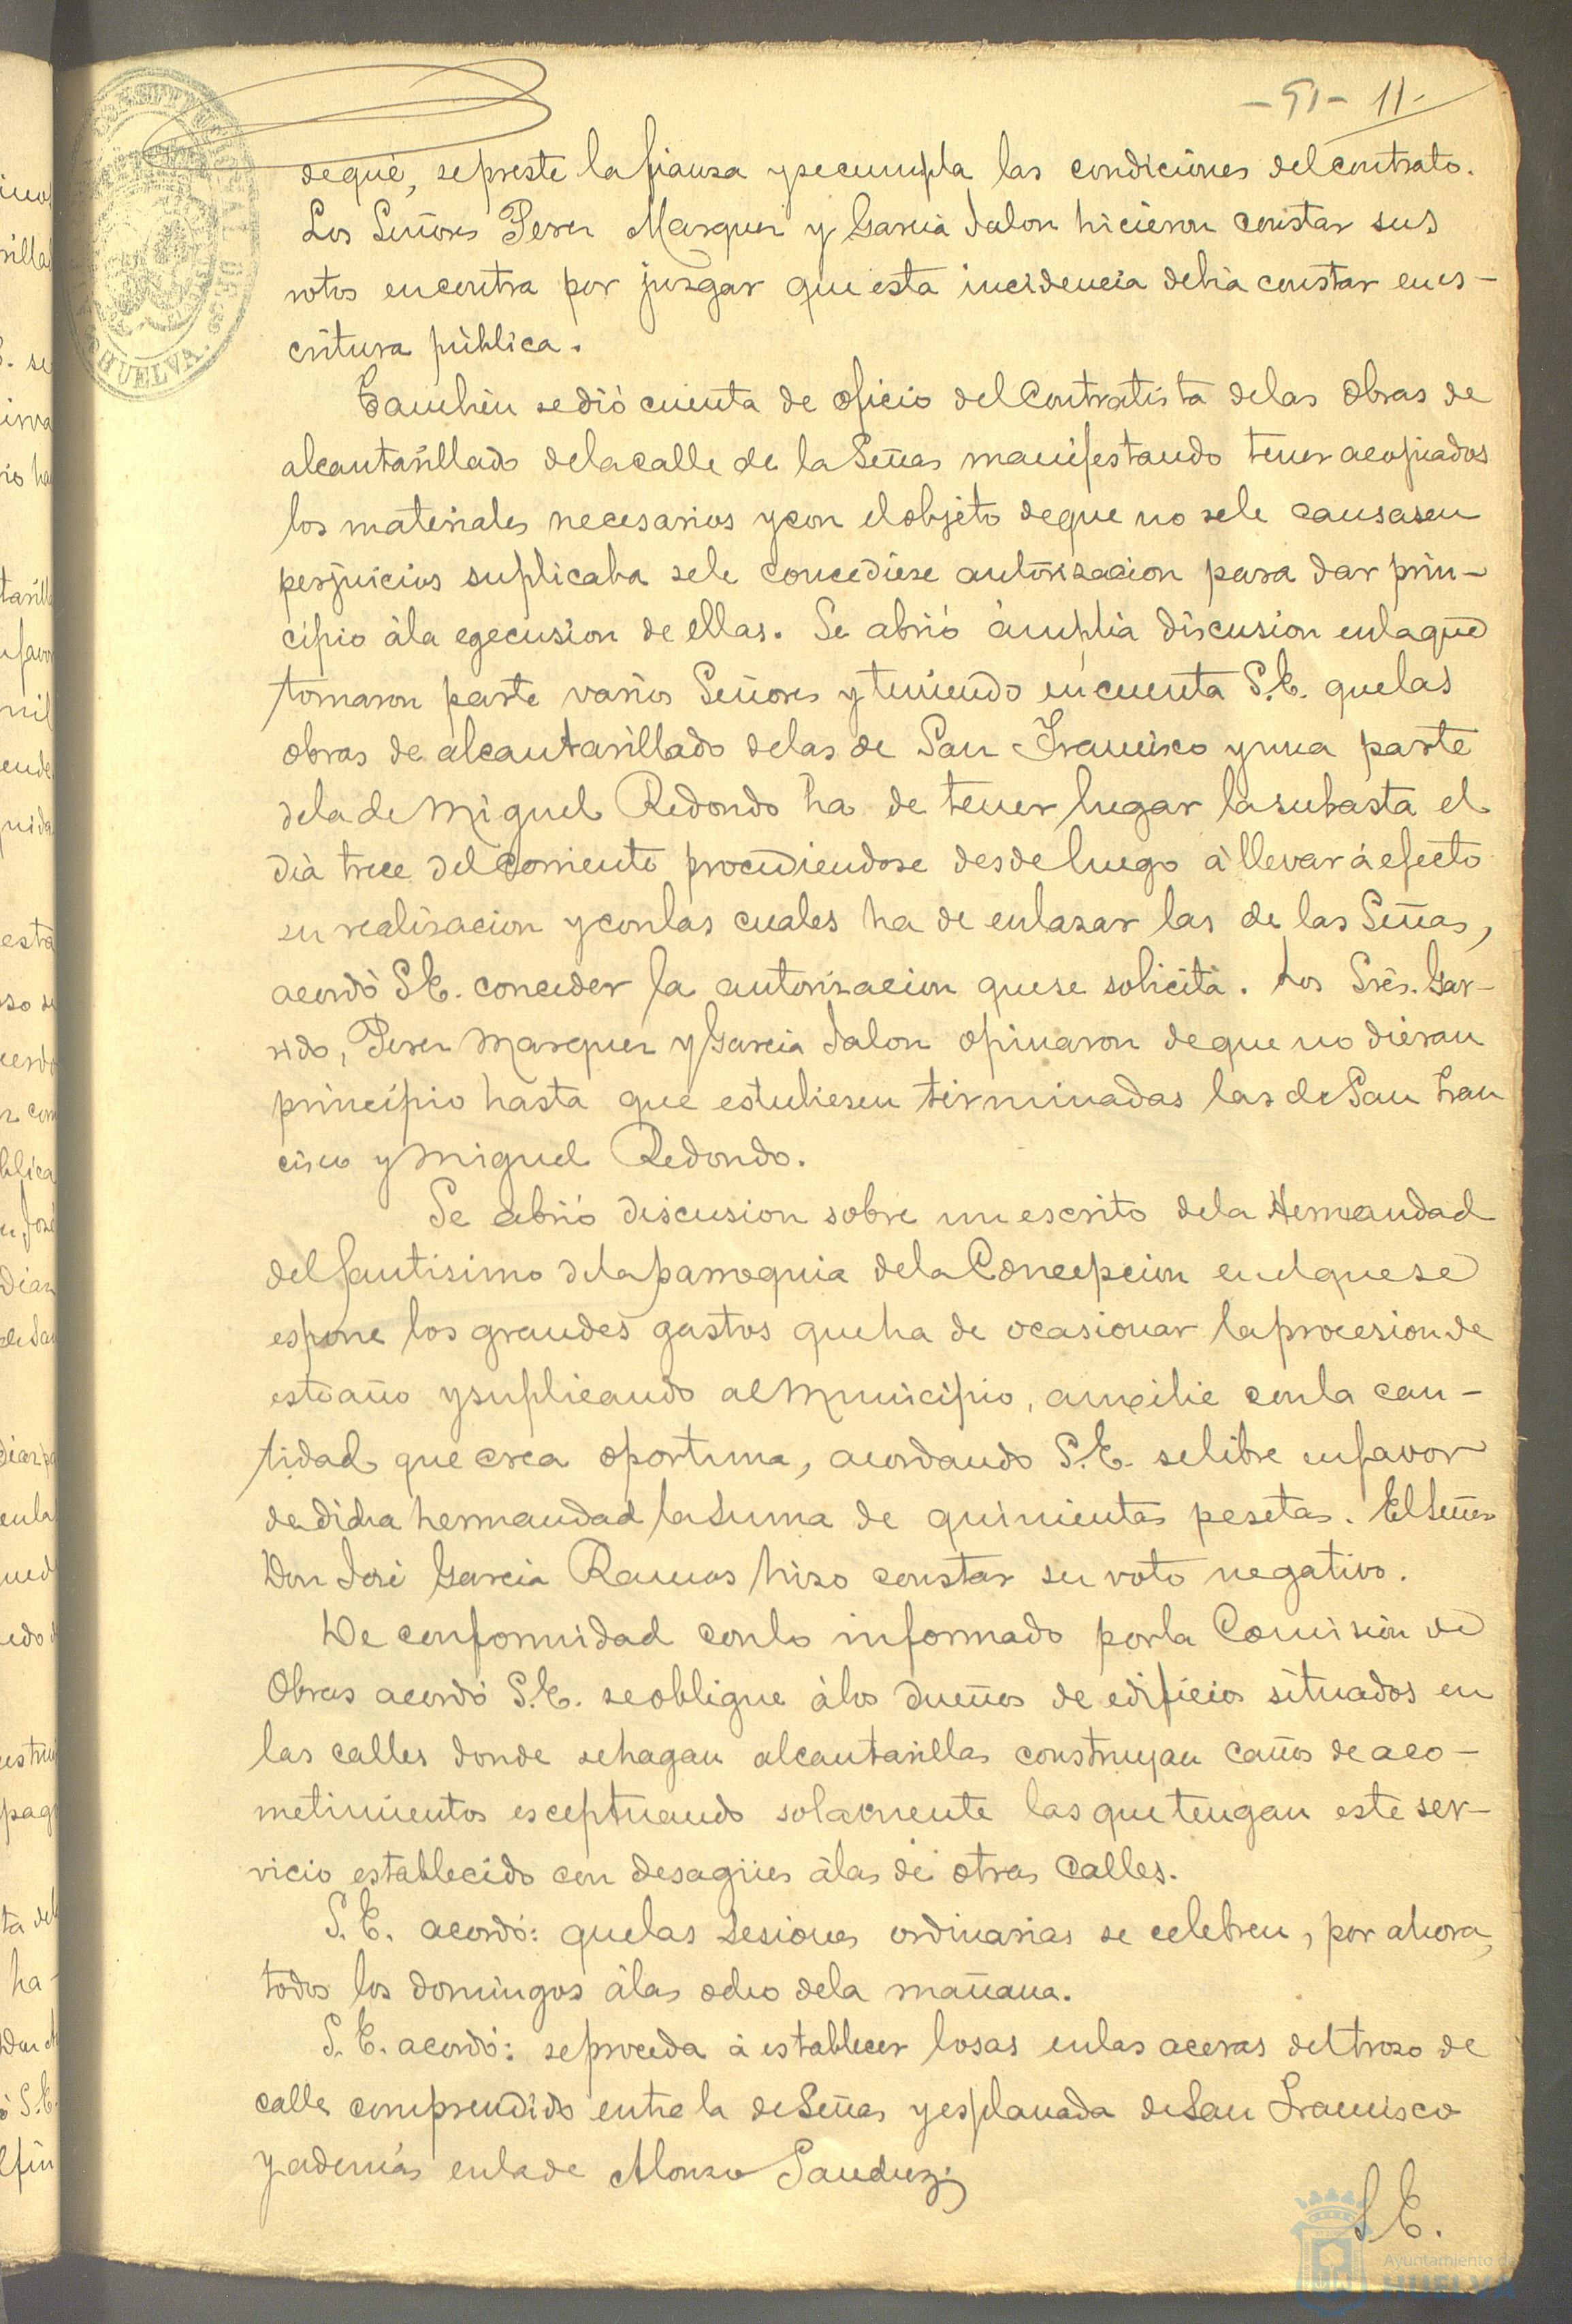 - 91 - 11-
deque, se preste la fianza y se cumpla las condiciones del contrato.
Los Señores Perez Marquez y Garcia Jalon hicieron constar sus
votos en contra por juzgar que esta incidencia debia constar en es-
critura pública.
Tambien se dió cuenta de oficio del Contratista de las Obras de
alcantarillado de la calle de la Señas manifestando tener acopiados
los materiales necesarios y con el objeto de que no se le causasen
perjuicios suplicaba se le concediese autorizacion para dar prin-
cipio á la egecusion de ellas. Se abrió ámplia discusion en la que
tomaron parte varios Señores y teniendo en cuenta S.E. que las
obras de alcantarillado de las de San Francisco y una parte
de la de Miguel Redondo ha de tener lugar la subasta el
dia trece del corriente procediendose desde luego á llevar á efecto
su realizacion y con las cuales ha de enlazar las de las Señas,
acordó S.E. conceder la autorizacion que se solicita. Los Sres. Gar-
rido, Perez Marquez y Garcia Jalon opinaron de que no dieran
principio hasta que estubiesen terminadas las de San Fran
cisco y Miguel Redondo.
Se abrió discusion sobre un escrito de la Hermandad
del Santisimo de la parroquia de la Concepcion en el que se
espone los grandes gastos que ha de ocasionar la procesion de
este año y suplicando al Municipio, auxilie con la can-
tidad que crea oportuna, acordando S.E. se libre en favor
de dicha hermandad la Suma de quinientas pesetas. El Señor
Don José Garcia Ramos hizo constar su voto negativo.
De conformidad con lo informado por la Comision de
Obras acordó S.E. se obligue á los dueños de edificios situados en
las calles donde se hagan alcantarillas construyan caños de aco-
metimientos esceptuando solamente las que tengan este ser-
vicio establecido con desagües á las de otras Calles.
S.E. acordó: que las sesiones ordinarias se celebren, por ahora,
todos los domingos á las ocho de la mañana.
S.E. acordó: se proceda á establecer losas en las aceras del trozo de
calle comprendido entre la de Señas y esplanada de San Francisco
y además en la de Alonso Sanchez;
S.E.
CONSTITUCIONAL DE HUELVA.
Ayuntamiento de
HUELVA